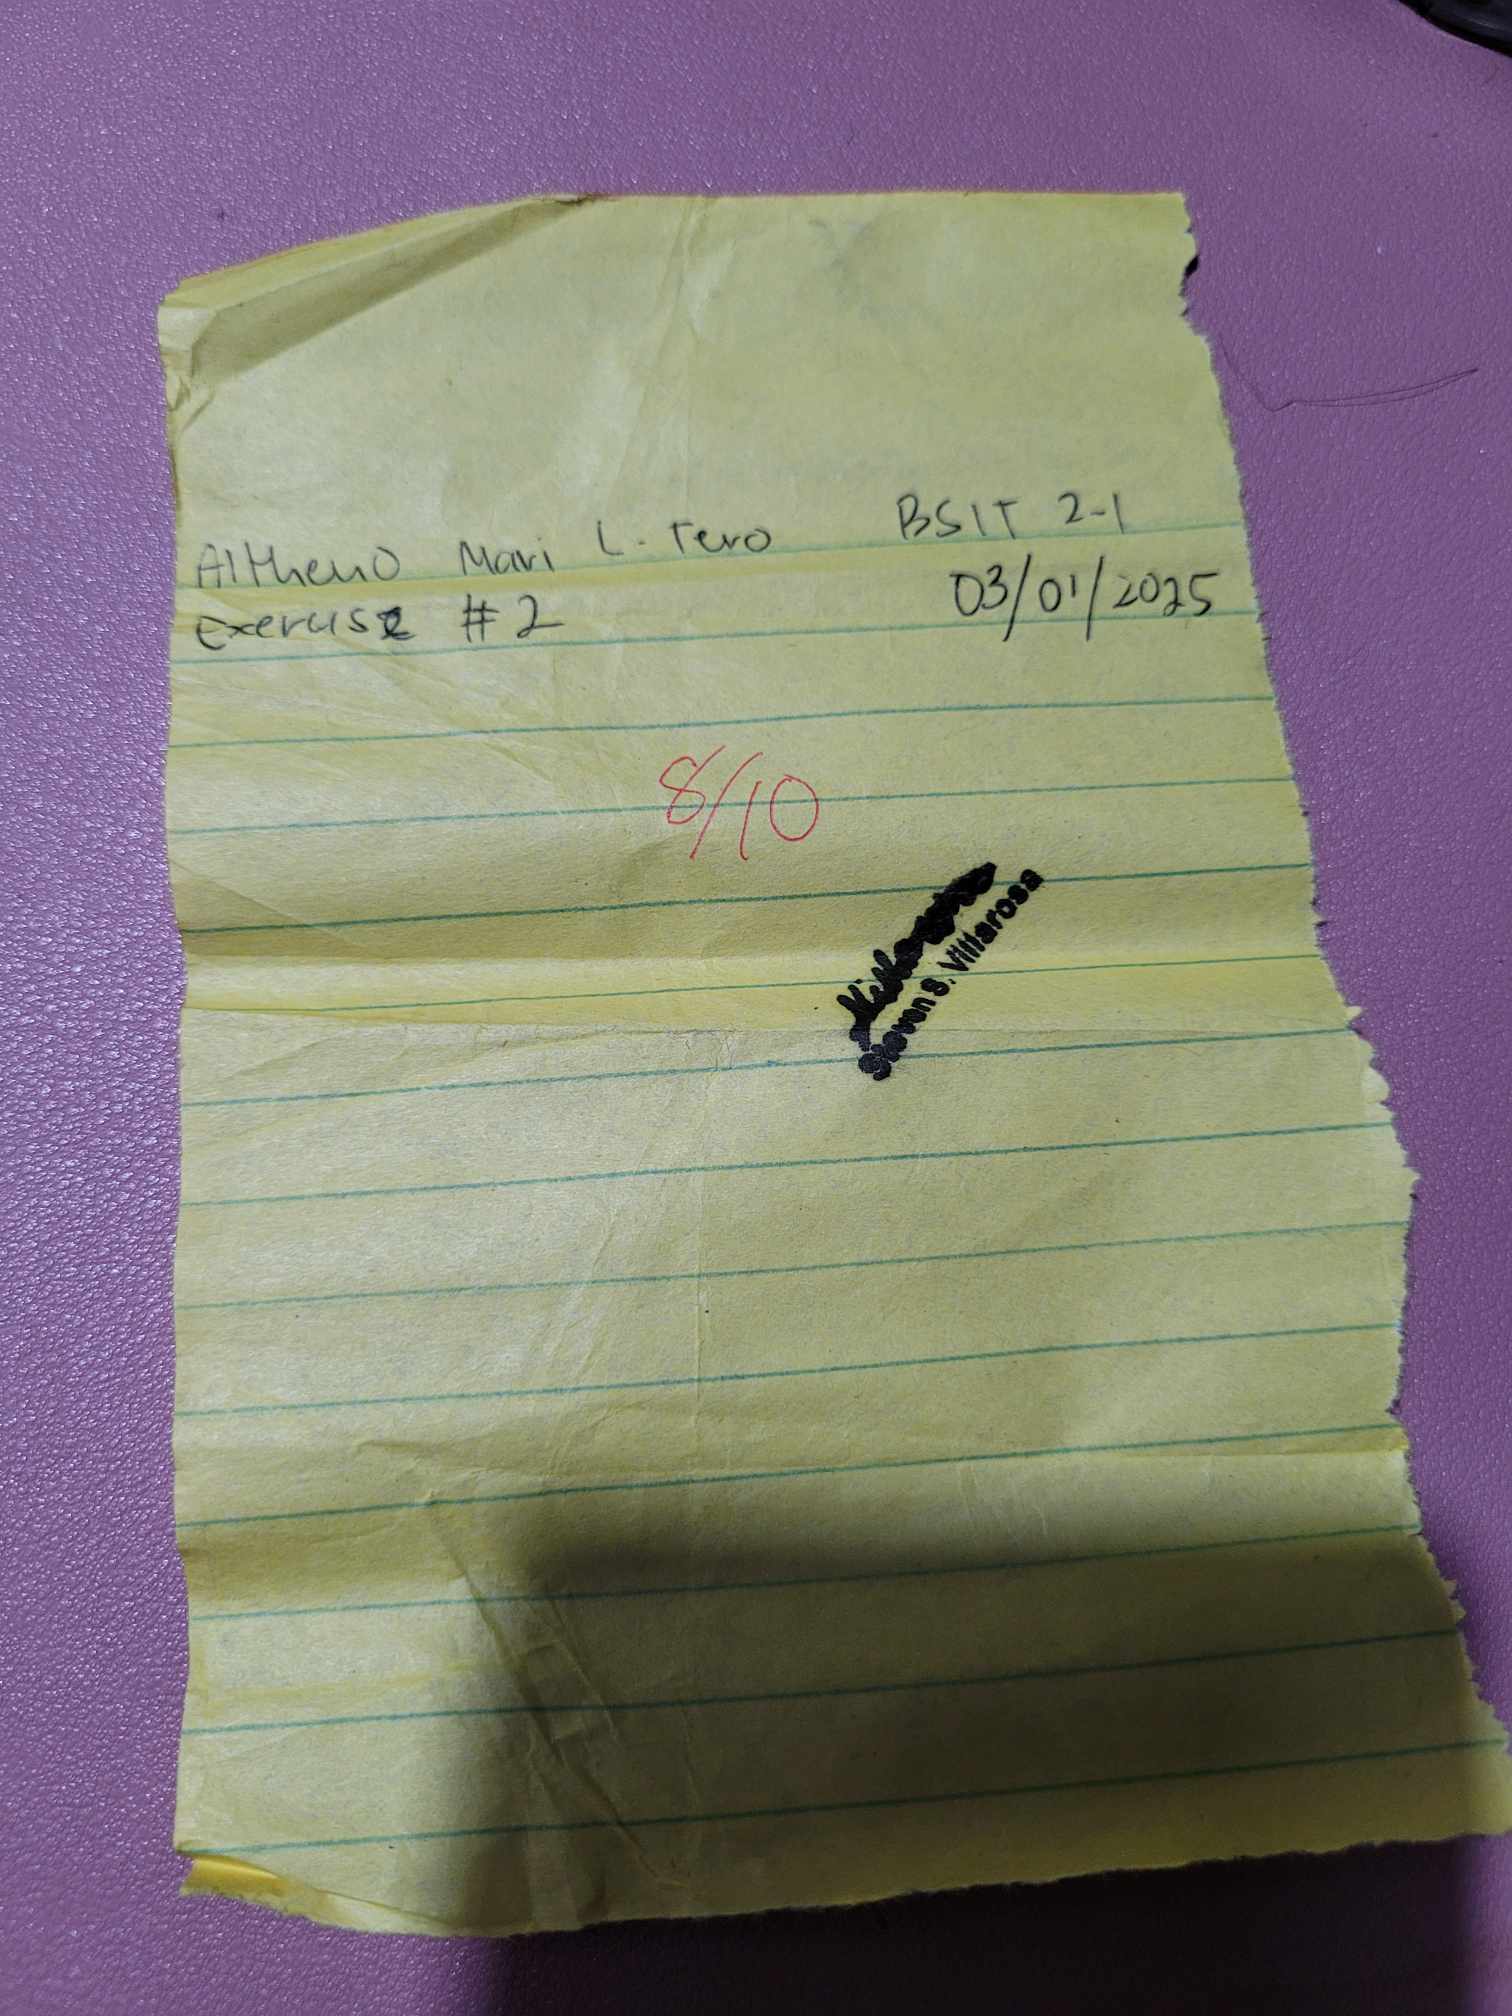 Altheno Mari L. Tero BSIT 2-1
Exercise #2 03/01/2025
8/10
Steven S. Villarosa